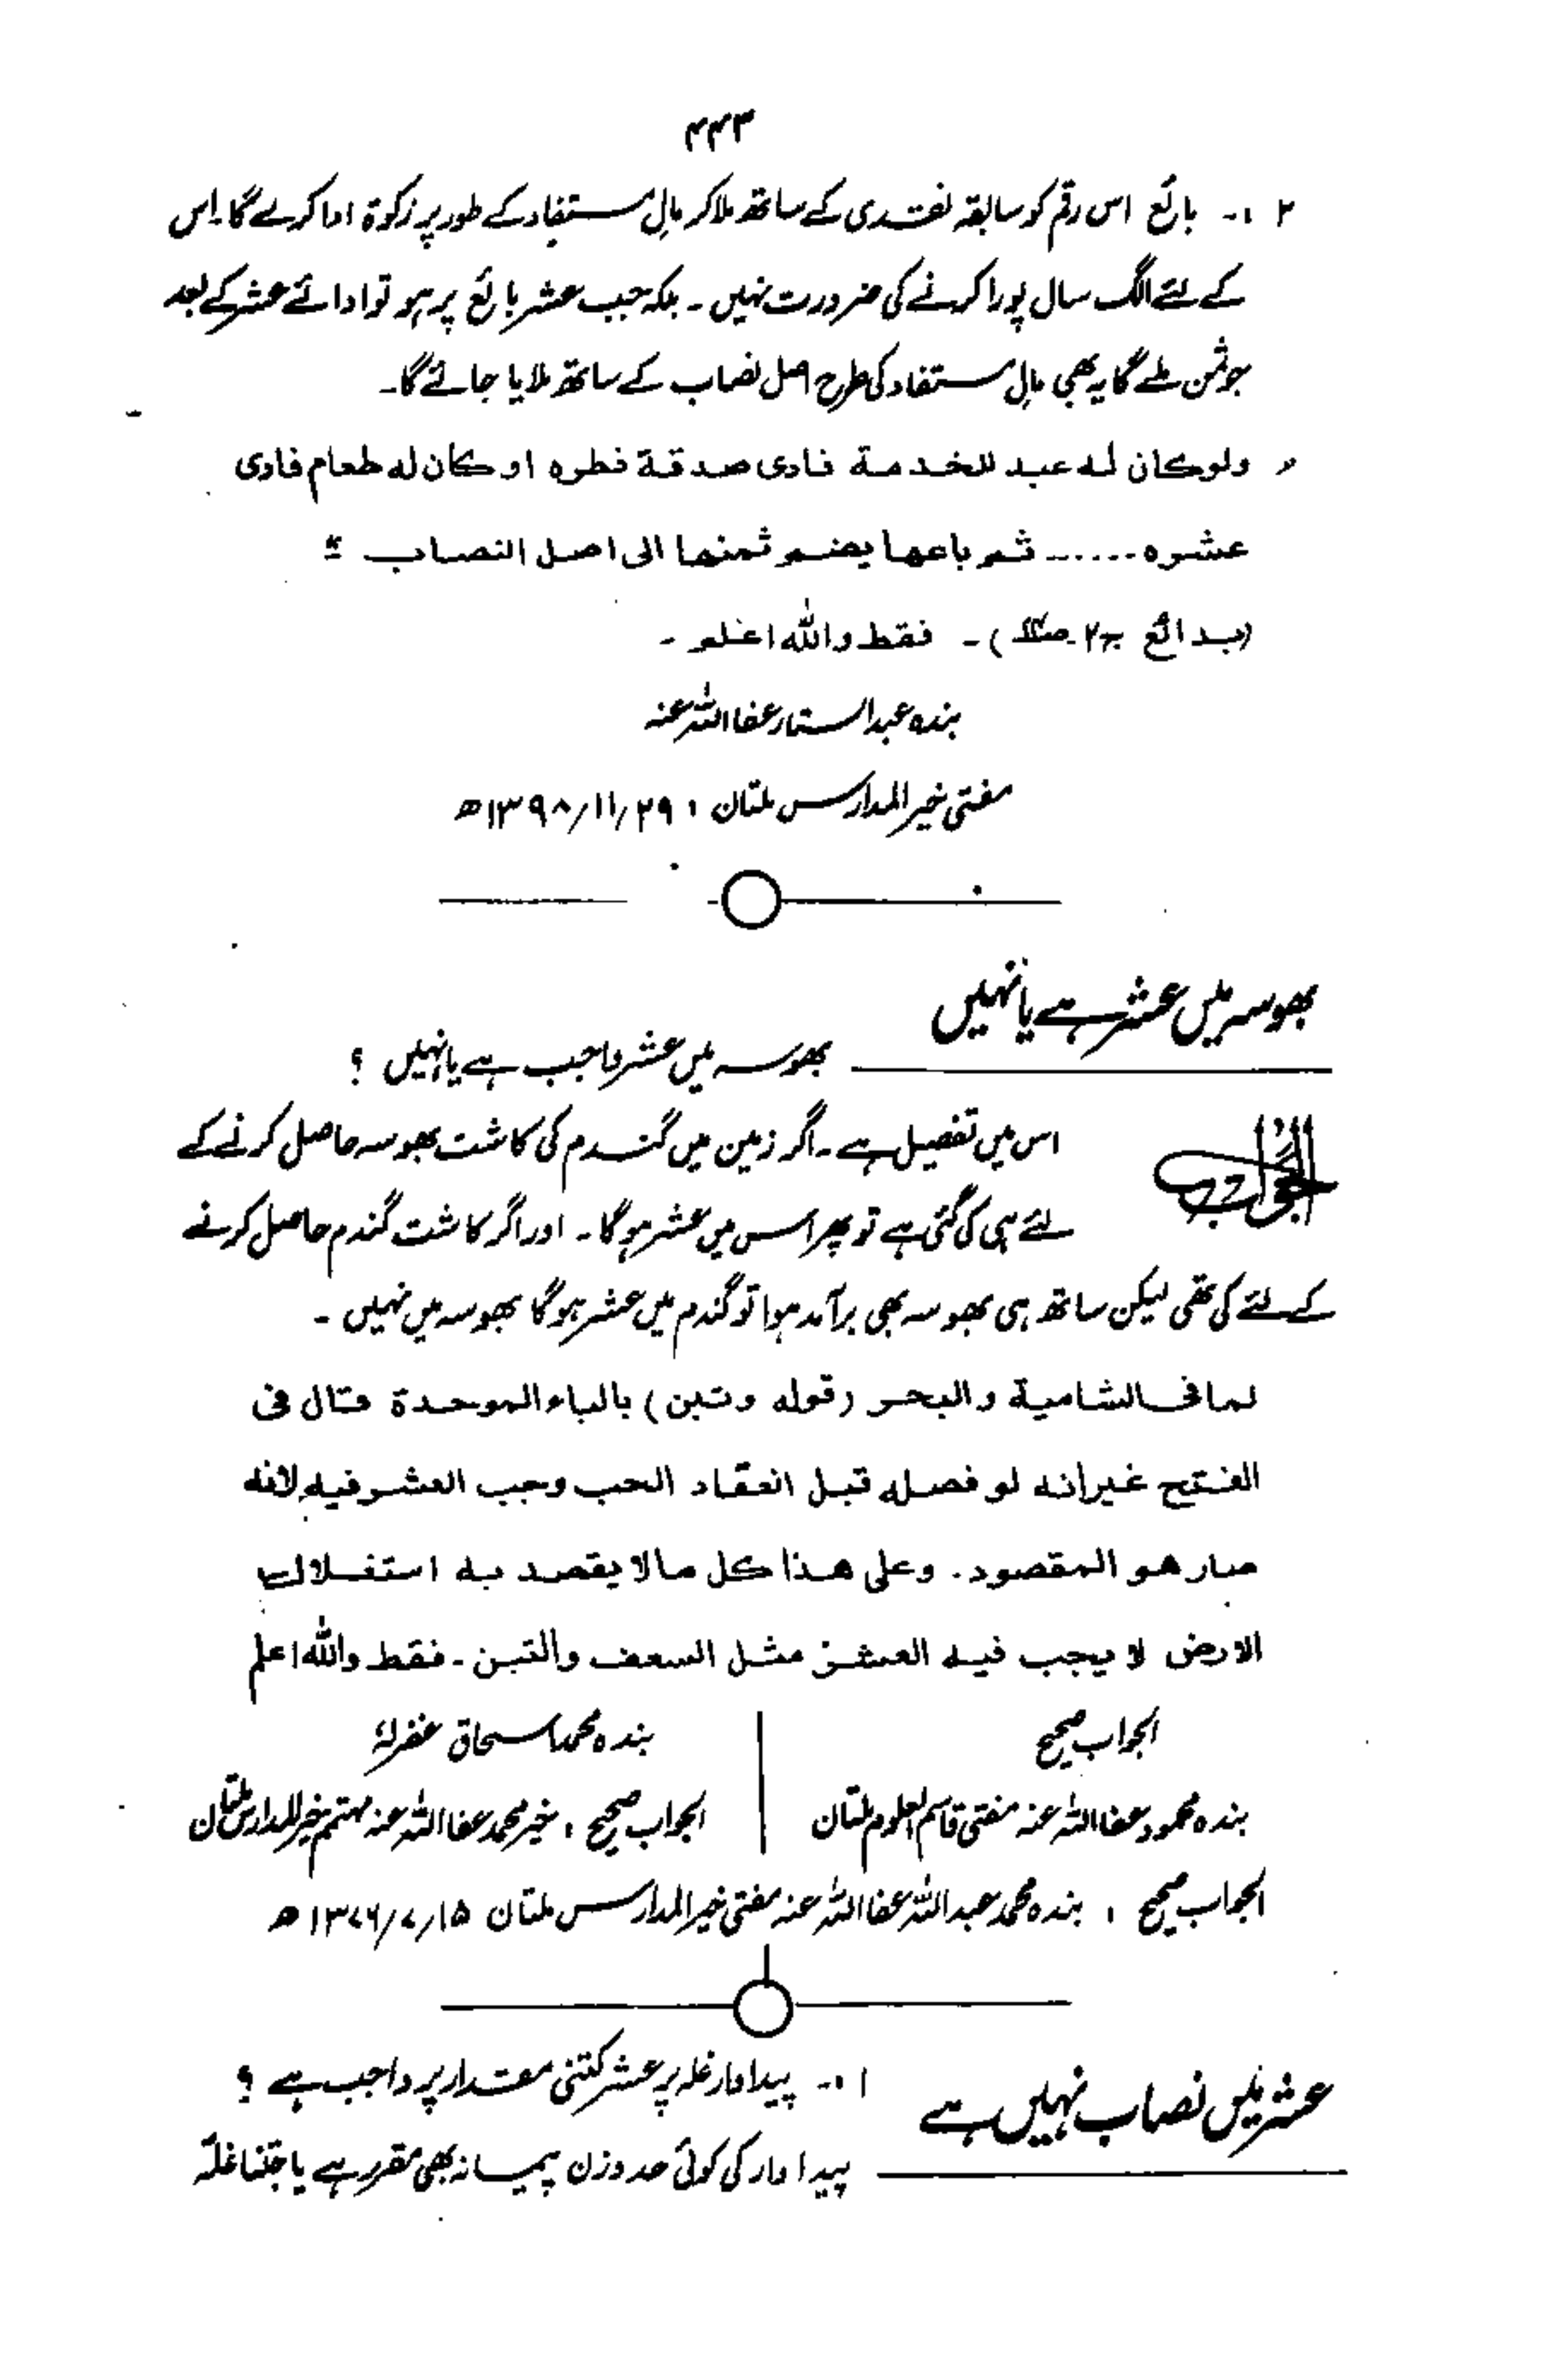 ۴۴۳
۲ :۔ بائع اس رقم کو سابقہ نقدی کے ساتھ ملا کر مالِ مستفاد کے طور پر زکوٰۃ ادا کرے گا۔ اس
کے لئے الگ سال پورا کرنے کی ضرورت نہیں ۔ بلکہ جب عشر بائع پر ہو تو ادائے عشر کے بعد
جو ثمن ملے گا یہ بھی مالِ مستفاد کی طرح اصل نصاب کے ساتھ ملایا جائے گا۔
" ولو كان له عبد للخدمة فادى صدقة فطره او كان له طعام فادى
عشره ...... ثم باعها يضم ثمنها الى اصل النصاب "
(بدائع ج۲ ص) ۔ فقط واللہ اعلم ۔
بندہ عبدالستار عفا اللہ عنہ
مفتی خیر المدارس ملتان ، ۲۹/۱۱/۱۳۹۸ھ
بھوسہ میں عشر ہے یا نہیں
بھوسہ میں عشر واجب ہے یا نہیں ؟
الجواب
اس میں تفصیل ہے ۔ اگر زمین میں گندم کی کاشت بھوسہ حاصل کرنے کے
لئے ہی کی گئی ہے تو پھر اس میں عشر ہوگا ۔ اور اگر کاشت گندم حاصل کرنے
کے لئے کی تھی لیکن ساتھ ہی بھوسہ بھی برآمد ہوا تو گندم میں عشر ہوگا بھوسہ میں نہیں ۔
لما فى الشامية والبحر (قوله وتبن) بالباء الموحدة قال فى
الفتح غير انه لو فصله قبل انعقاد الحب وجب العشر فيه لانه
صار هو المقصود. وعلى هذا كل ما لا يقصد به استغلال
الارض لا يجب فيه العشر مثل السعف والتبن ۔ فقط واللہ اعلم
الجواب صحیح
بندہ محمد اسحاق غفرلہٗ
بندہ محمود عفا اللہ عنہ مفتی قاسم العلوم ملتان
الجواب صحیح ، خیر محمد عفا اللہ عنہ مہتمم خیر المدارس ملتان
الجواب صحیح ، بندہ محمد عبداللہ عفا اللہ عنہ مفتی خیر المدارس ملتان ۱۵/۷/۱۳۷۶ھ
عشر میں نصاب نہیں ہے
۱ :۔ پیداوار غلہ پر عشر کتنی مقدار پر واجب ہے ؟
پیداوار کی کوئی حد وزن پیمانہ بھی مقرر ہے یا جتنا غلّہ